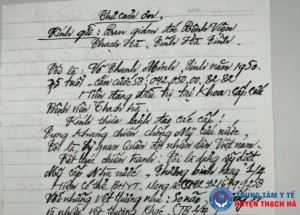 Thư cảm ơn,
Kính gửi: Ban giám đốc Bệnh viện
Thạch Hà, Tỉnh Hà Tĩnh
Tôi là: Võ Thanh Minh, sinh năm 1950
75 tuổi - căn cước số: 042.050.00
Tiền đang điều trị tại khoa: cấp cứu
Bệnh viện Thạch Hà.
Kính thưa
Trong kháng chiến chống Mỹ cứu nước,
Tôi là, sỹ quan Quân đội nhân dân Việt nam.
Kết thúc chiến tranh: Tôi là dũng sỹ diệt
Mỹ cấp Nhà nước, Thương binh hạng 2/4
Hiện có thẻ BHYT, mạng số
Với những vết thương như: Sọ não
là nhiều vết thương khác
TRUNG TÂM Y TẾ
HUYỆN THẠCH HÀ